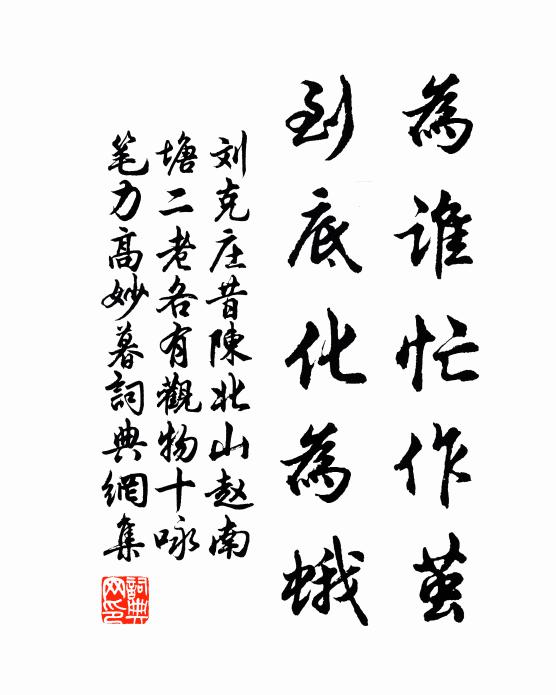 為誰忙作茧
到底化為蛾
刘克庄昔陳北山赵南
塘二老各有觀物十咏
笔力高妙暮詞典網集
詞典网印